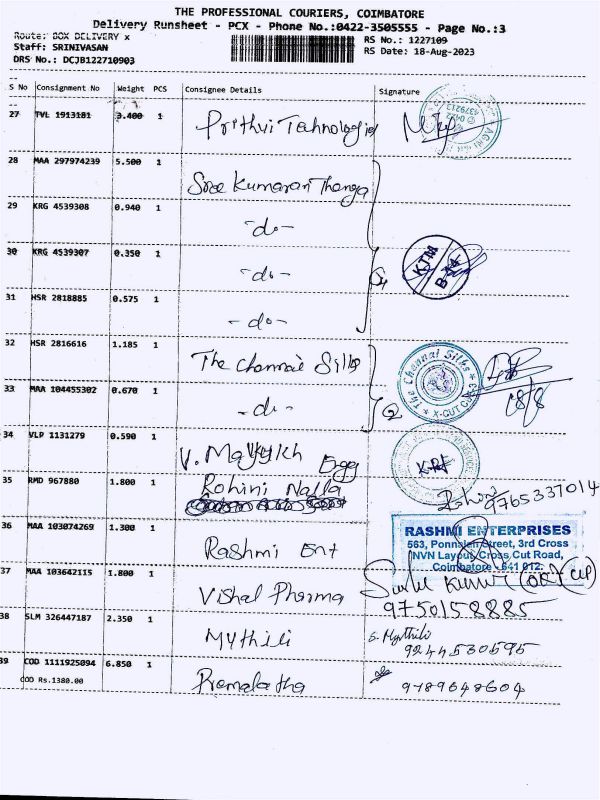 THE PROFESSIONAL COURIERS, COIMBATORE
Delivery Runsheet - PCX - Phone No.:0422-3505555 - Page No.:3
Route: BOX DELIVERY x
Staff: SRINIVASAN
DRS No.: DCJB122710903
RS No.: 1227109
RS Date: 18-Aug-2023
S No Consignment No Weight PCS Consignee Details Signature
27 TVL 1913181 3.400 1 Prithvi Technologies
28 MAA 297974239 5.500 1 Sree Kumaran Thanga
29 KRG 4539308 0.940 1 -do-
30 KRG 4539307 0.350 1 -do-
KTM
31 HSR 2818885 0.575 1 -do-
32 HSR 2816616 1.185 1 The Chennai Silks
The Chennai Silks * X-CUT CBE-3 *
18/8
33 MAA 104455302 0.670 1 -do-
2
34 VLP 1131279 0.590 1 V. Engg
35 RMD 967880 1.800 1 Rohini Nalla
Rohini 9765337014
36 MAA 103074269 1.300 1 Rashmi Ent
RASHMI ENTERPRISES
563, Street, 3rd Cross
NVN Layout, Cross Cut Road,
Coimbatore - 641 012.
37 MAA 103642115 1.800 1 Vishal Pharma
Kumar
9750158885
38 SLM 326447187 2.350 1 Mythili
S. Mythili
9244530595
39 COD 1111925094 6.850 1 Premalatha 9789648604
COD Rs.1380.00